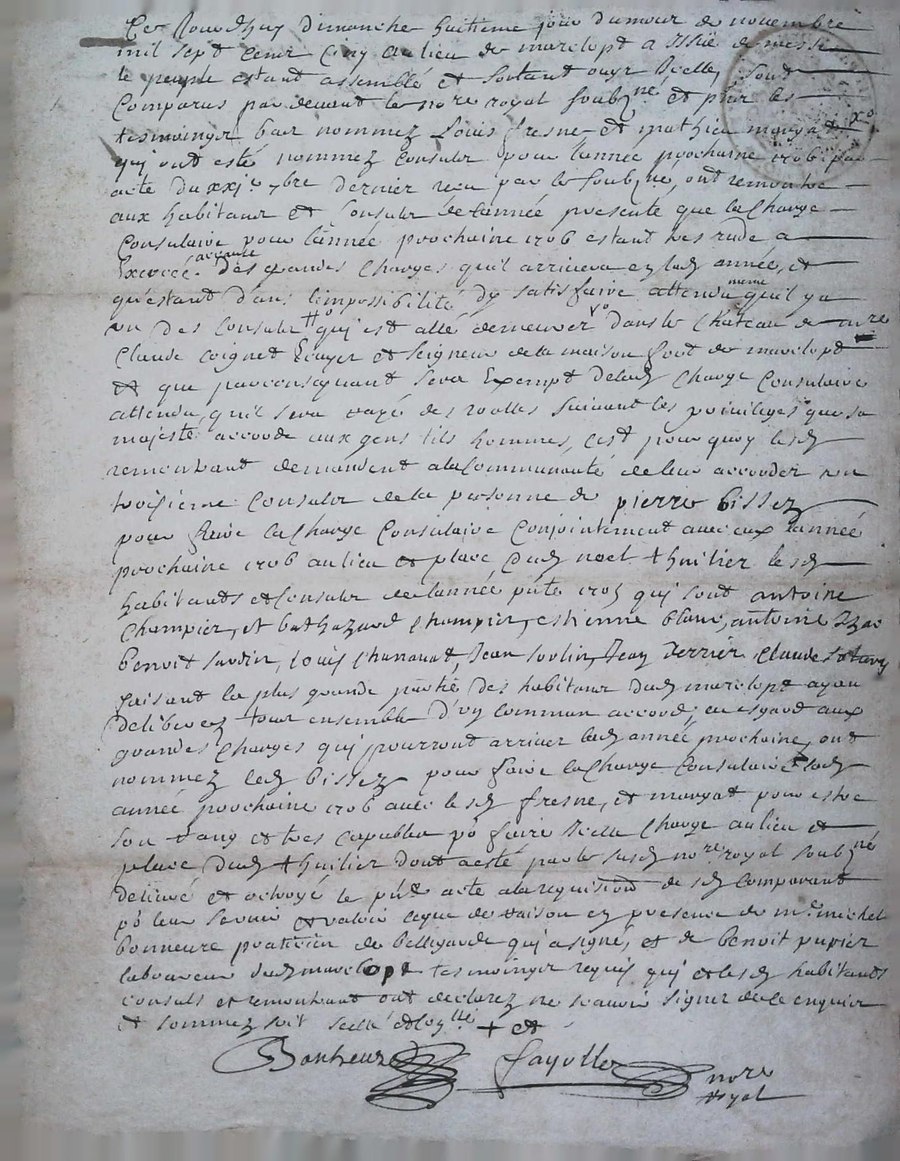 Ce Jourdhuy dimanche huitieme jour du mois de novembre
mil sept cent cinq au lieu de marclopt a Issüe de messe
le peuple estant assemblé et sortant ouyr Icelle, sont
Comparus par devant le no.re royal soubz.ne et pnt les
tesmoingz bas nommez Louis fresne et mathieu margat
quy ont esté nommez Consulz pour l'année prochaine 1706 par
acte du xxje 7bre dernier receu par le soubzne, ont remontré
aux habitans et Consulz de l'année presente que la Charge
Consulaire pour l'année prochaine 1706 estant tres rude a
Exercée des grandes Charges qu'il arrivera en lad année, et
qu'estant dans l'impossibilité dy satisfaire attendu mesme qu'il y a
un des Consulz # quj est allé demeurer dans le Château de mre
Claude Coignet Ecuyer et Seigneur de la maison fort de marclopt
et que par consequant sera Exempt de lad Charge Consulaire
attendu qu'il sera rayé des rolles suivant les privileges que sa
majesté accorde aux gentils hommes, C'est pourquoy lesd
remontrant demandent a la Communauté de leur accorder un
troisieme Consulz de la personne de pierre bissez
pour faire la Charge Consulaire Conjointement avec eux l'année
prochaine 1706 au lieu et place dud noel thuilier lesd
habitants et Consulz de l'année pnte 1705 quj sont antoine
Champier, et bathazard Champier, estienne blanc, antoine
benoit Jardin, Louis Chanavat, Jean Soulin, Jean Verrier Claude
faisant la plus grande partie des habitans dud marclopt ayant
deliberez tous ensemble d'un commun accord en esgard aux
grandes Charges quj pourront arriver lad année prochaine, ont
nommez led bissez pour faire la Charge Consulaire lad
année prochaine 1706 avec lesd fresne, et margat pour estre
son rang et tres capables po faire Icelle Charge au lieu et
place dud thuilier dont a esté par le susd no.re royal soubzné
delivré et octroyé le pnt acte a la requisition de sd Comparant
po leur servir et valoir ce que de raison en presence de mre michel
bonneure praticien de bellegarde quj a signé, et de benoit pupier
laboureur dud marclopt tesmoingz requis quj et lesd habitants
Consulz et remontrant ont declarez ne scavoir signer de ce enquis
et sommez soit scellé
Bonheure fayolle nore
royal